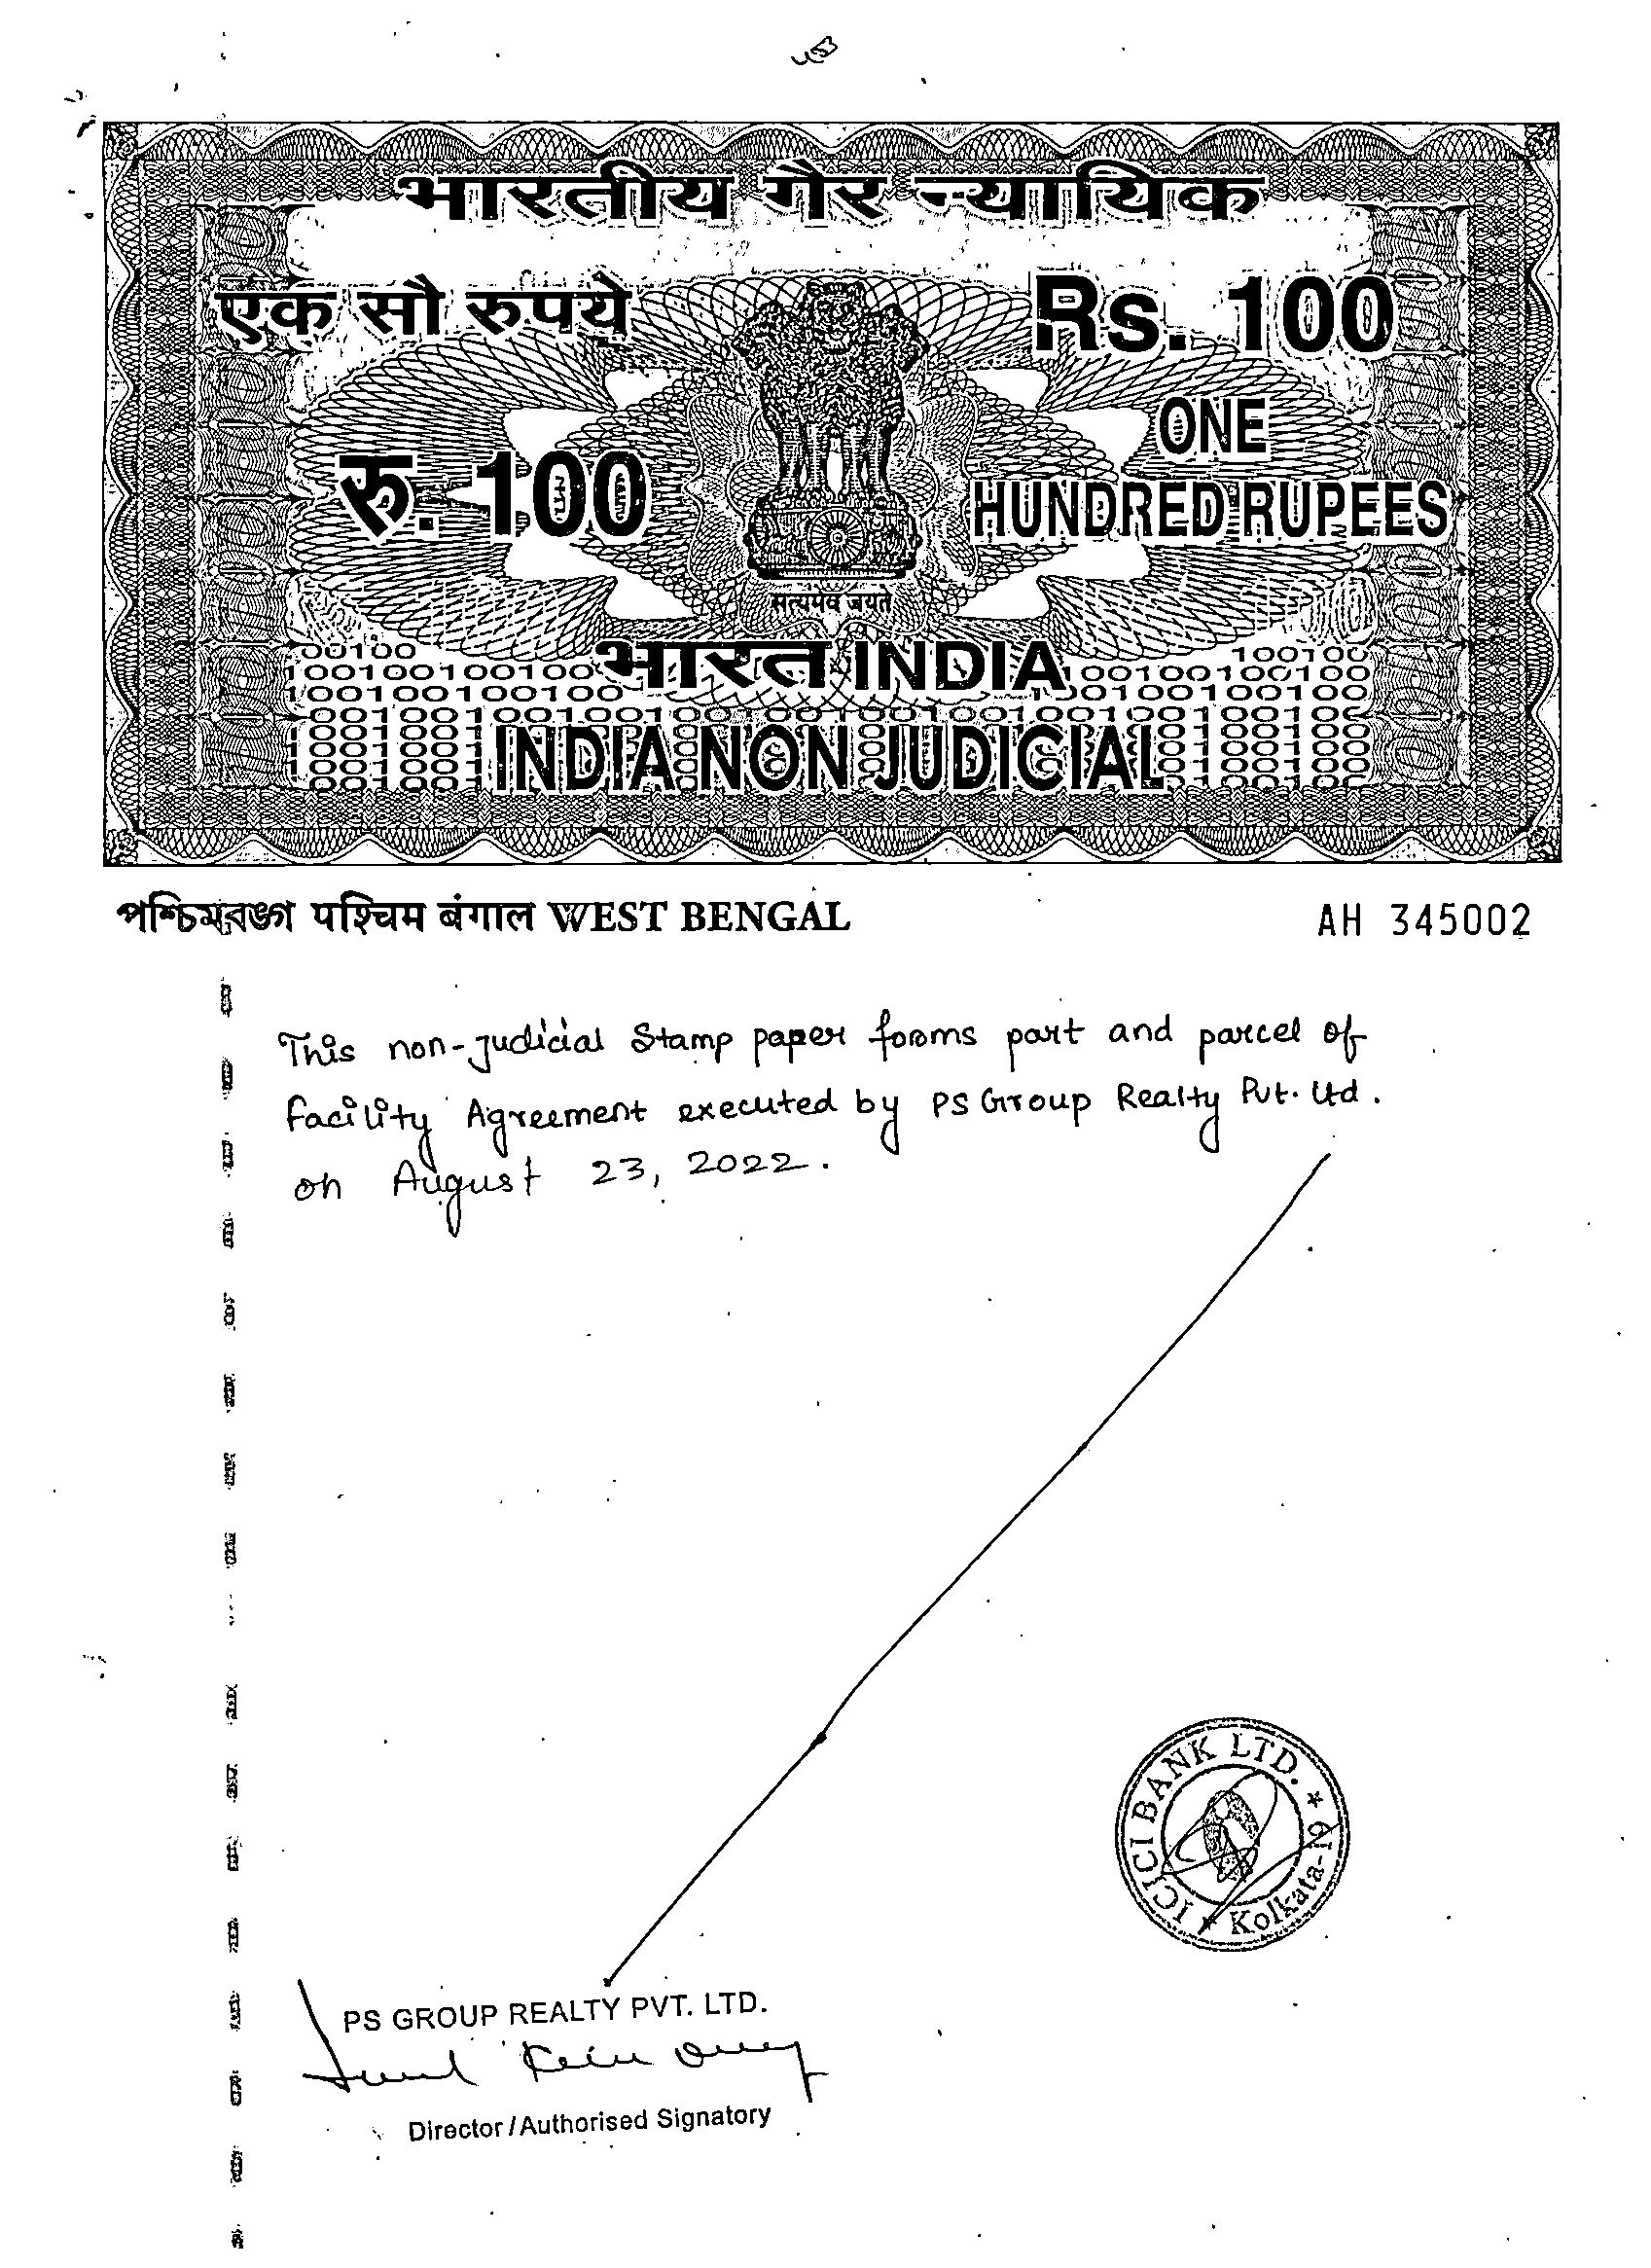 भारतीय गैर न्यायिक
एक सौ रुपये
Rs. 100
रु. 100
ONE
HUNDRED RUPEES
सत्यमेव जयते
भारत INDIA
INDIA NON JUDICIAL
পশ্চিমবঙ্গ पश्चिम बंगाल WEST BENGAL
AH 345002
This non-judicial Stamp paper forms part and parcel of
Facility Agreement executed by PS Group Realty Pvt. Ltd.
on August 23, 2022.
ICICI BANK LTD. * Kolkata-19 *
PS GROUP REALTY PVT. LTD.
Director / Authorised Signatory